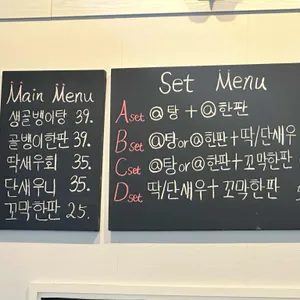 Main Menu
생골뱅이탕 39.
골뱅이한판 39.
딱새우회 35.
단새우니 35.
꼬막한판 25.
Set Menu
A set @탕 + @한판
B set @탕 or @한판 + 딱/단새우
C set @탕 or @한판 + 꼬막한판
D set 딱/단새우 + 꼬막한판